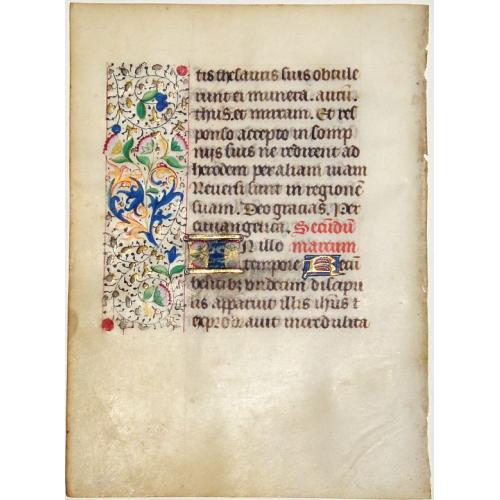 tis thesauris suis obtule
runt ei munera. aurū.
thus. et mirram. Et res
ponso accepto in somp
nijs suis ne redirent ad
herodem per aliam viam
Reversi sunt in regionē
suam. Deo gracias. Per
euvangelica. Secūdū
In illo marcum
tempore Recū
bentibz undecim discipu
lis apparuit illis ihus t
exprobravit incredulita